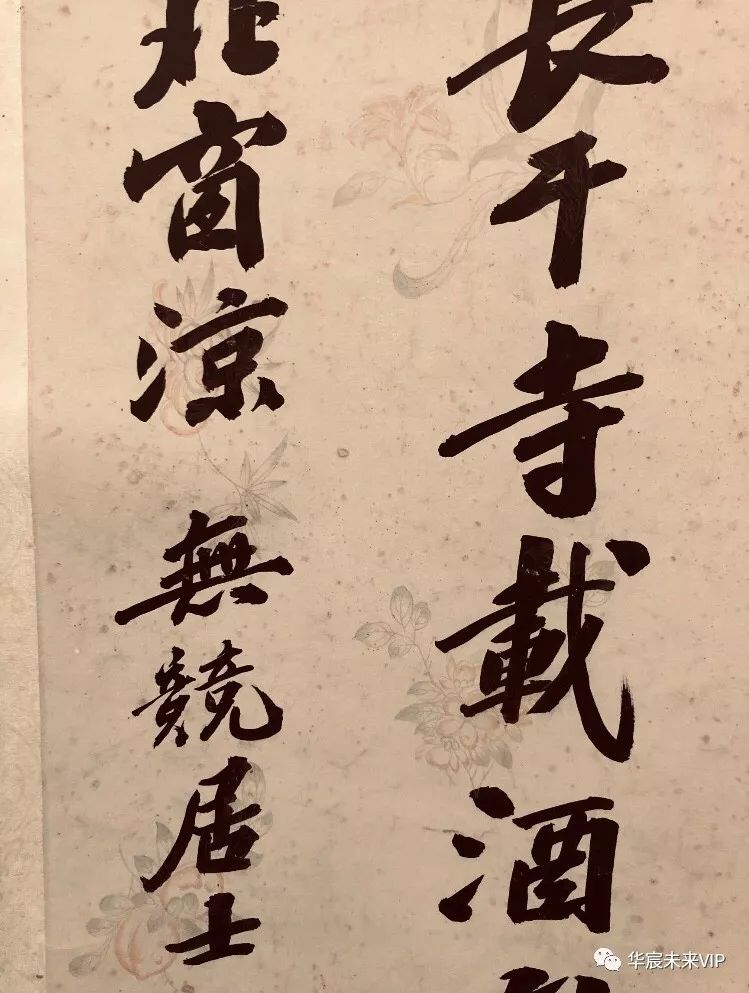 長干寺載酒
北窗涼 無競居士
华宸未来VIP